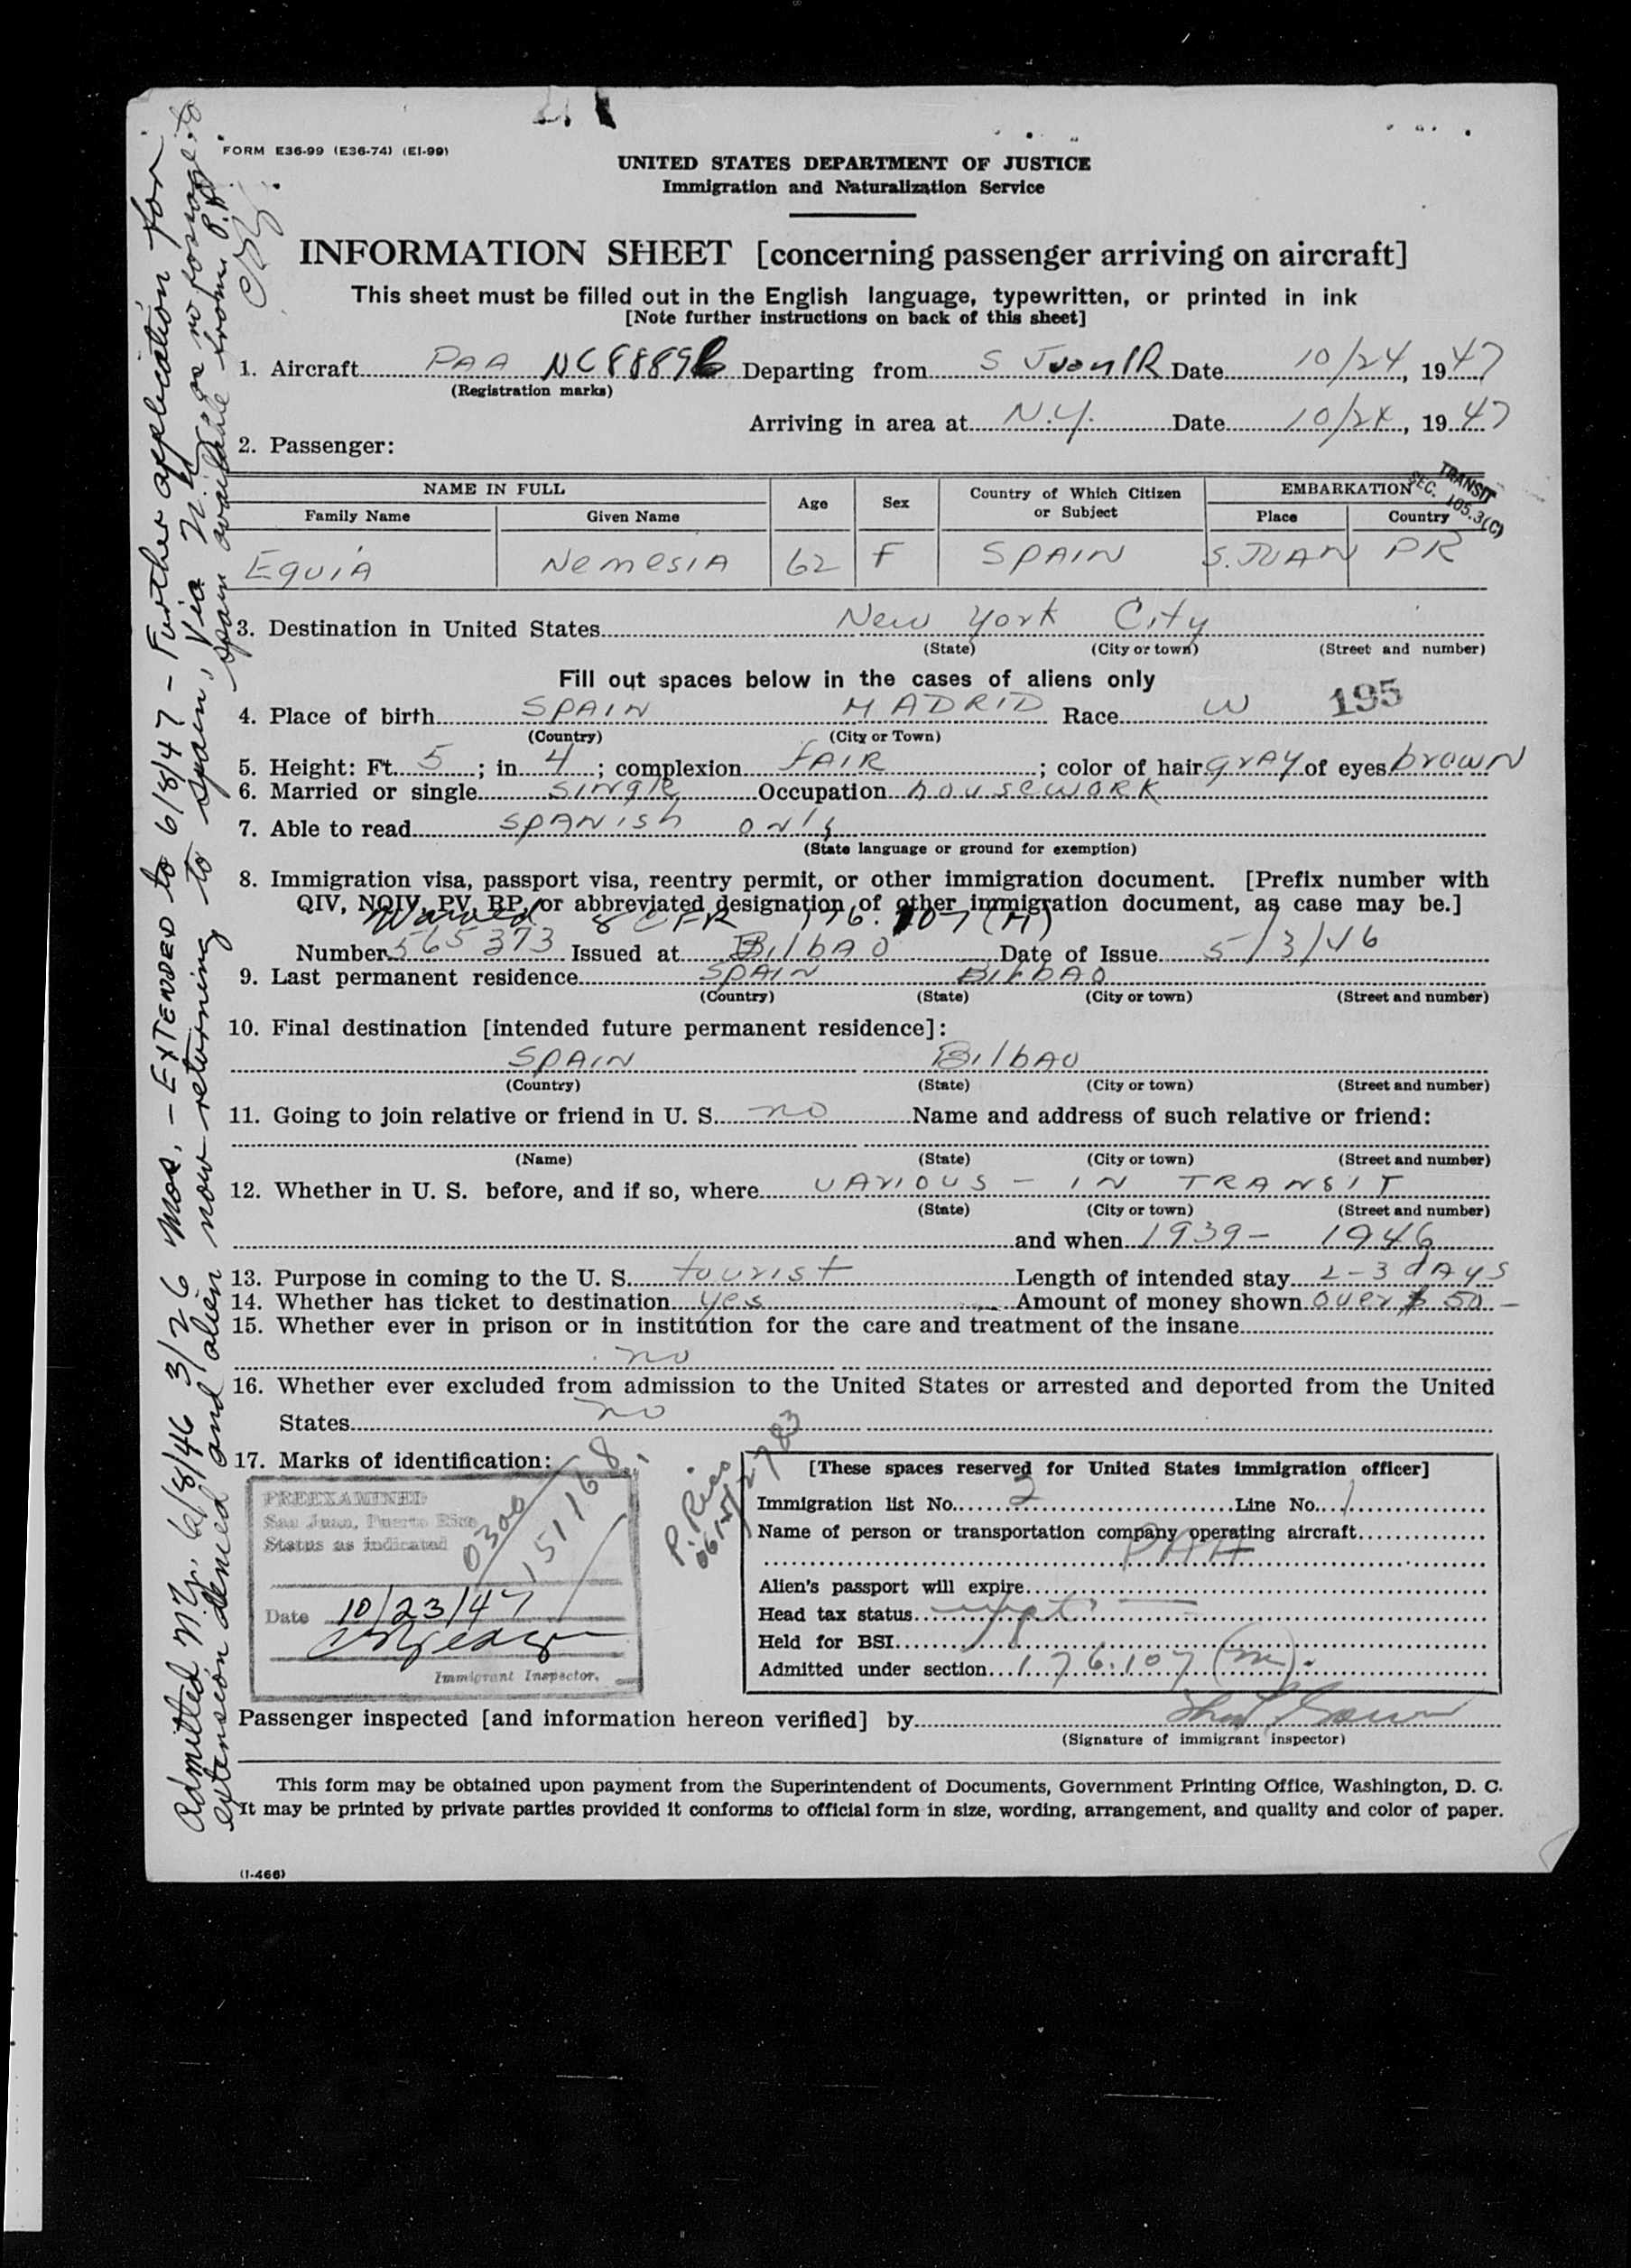 FORM E36-99 (E36-74) (EI-99)
UNITED STATES DEPARTMENT OF JUSTICE
Immigration and Naturalization Service
INFORMATION SHEET [concerning passenger arriving on aircraft]
This sheet must be filled out in the English language, typewritten, or printed in ink
[Note further instructions on back of this sheet]
1. Aircraft PAA NC8889 Departing from S Juan PR Date 10/24, 1947
(Registration marks)
Arriving in area at N.Y. Date 10/24, 1947
2. Passenger:
TRANSIT
SEC. 105.3(C)
NAME IN FULL Age Sex Country of Which Citizen or Subject EMBARKATION
Family Name Given Name Place Country
Equia Nemesia 62 F SPAIN S. JUAN PR
3. Destination in United States New York City
(State) (City or town) (Street and number)
Fill out spaces below in the cases of aliens only
4. Place of birth SPAIN MADRID Race W 195
(Country) (City or Town)
5. Height: Ft. 5; in 4; complexion FAIR; color of hair gray of eyes brown
6. Married or single single Occupation housework
7. Able to read SPANISH only
(State language or ground for exemption)
8. Immigration visa, passport visa, reentry permit, or other immigration document. [Prefix number with
QIV, NQIV, PV, RP, or abbreviated designation of other immigration document, as case may be.]
Waived 8 CFR 176.107 (M)
Number 565373 Issued at Bilbao Date of Issue 5/3/46
9. Last permanent residence SPAIN Bilbao
(Country) (State) (City or town) (Street and number)
10. Final destination [intended future permanent residence]:
SPAIN Bilbao
(Country) (State) (City or town) (Street and number)
11. Going to join relative or friend in U. S. no Name and address of such relative or friend:
(Name) (State) (City or town) (Street and number)
12. Whether in U. S. before, and if so, where VARIOUS - IN TRANSIT
(State) (City or town) (Street and number)
and when 1939 - 1946
13. Purpose in coming to the U. S. tourist Length of intended stay 2-3 days
14. Whether has ticket to destination yes Amount of money shown over $ 50 -
15. Whether ever in prison or in institution for the care and treatment of the insane
no
16. Whether ever excluded from admission to the United States or arrested and deported from the United
States no
17. Marks of identification:
0300/151168
P. Rico
PREEXAMINED
San Juan, Puerto Rico
Status as indicated
Date 10/23/47
Immigrant Inspector.
[These spaces reserved for United States immigration officer]
Immigration list No. 2 Line No. 1
Name of person or transportation company operating aircraft
PAA
Alien's passport will expire
Head tax status
Held for BSI
Admitted under section 176.107 (m).
Passenger inspected [and information hereon verified] by
(Signature of immigrant inspector)
This form may be obtained upon payment from the Superintendent of Documents, Government Printing Office, Washington, D. C.
It may be printed by private parties provided it conforms to official form in size, wording, arrangement, and quality and color of paper.
(I-466)
Admitted N.Y. 6/8/46 3/26 Mos. - EXTENDED to 6/8/47 - Further application for
extension denied and alien now returning to Spain, via N.Y. as no passage to
Spain available from P.R.